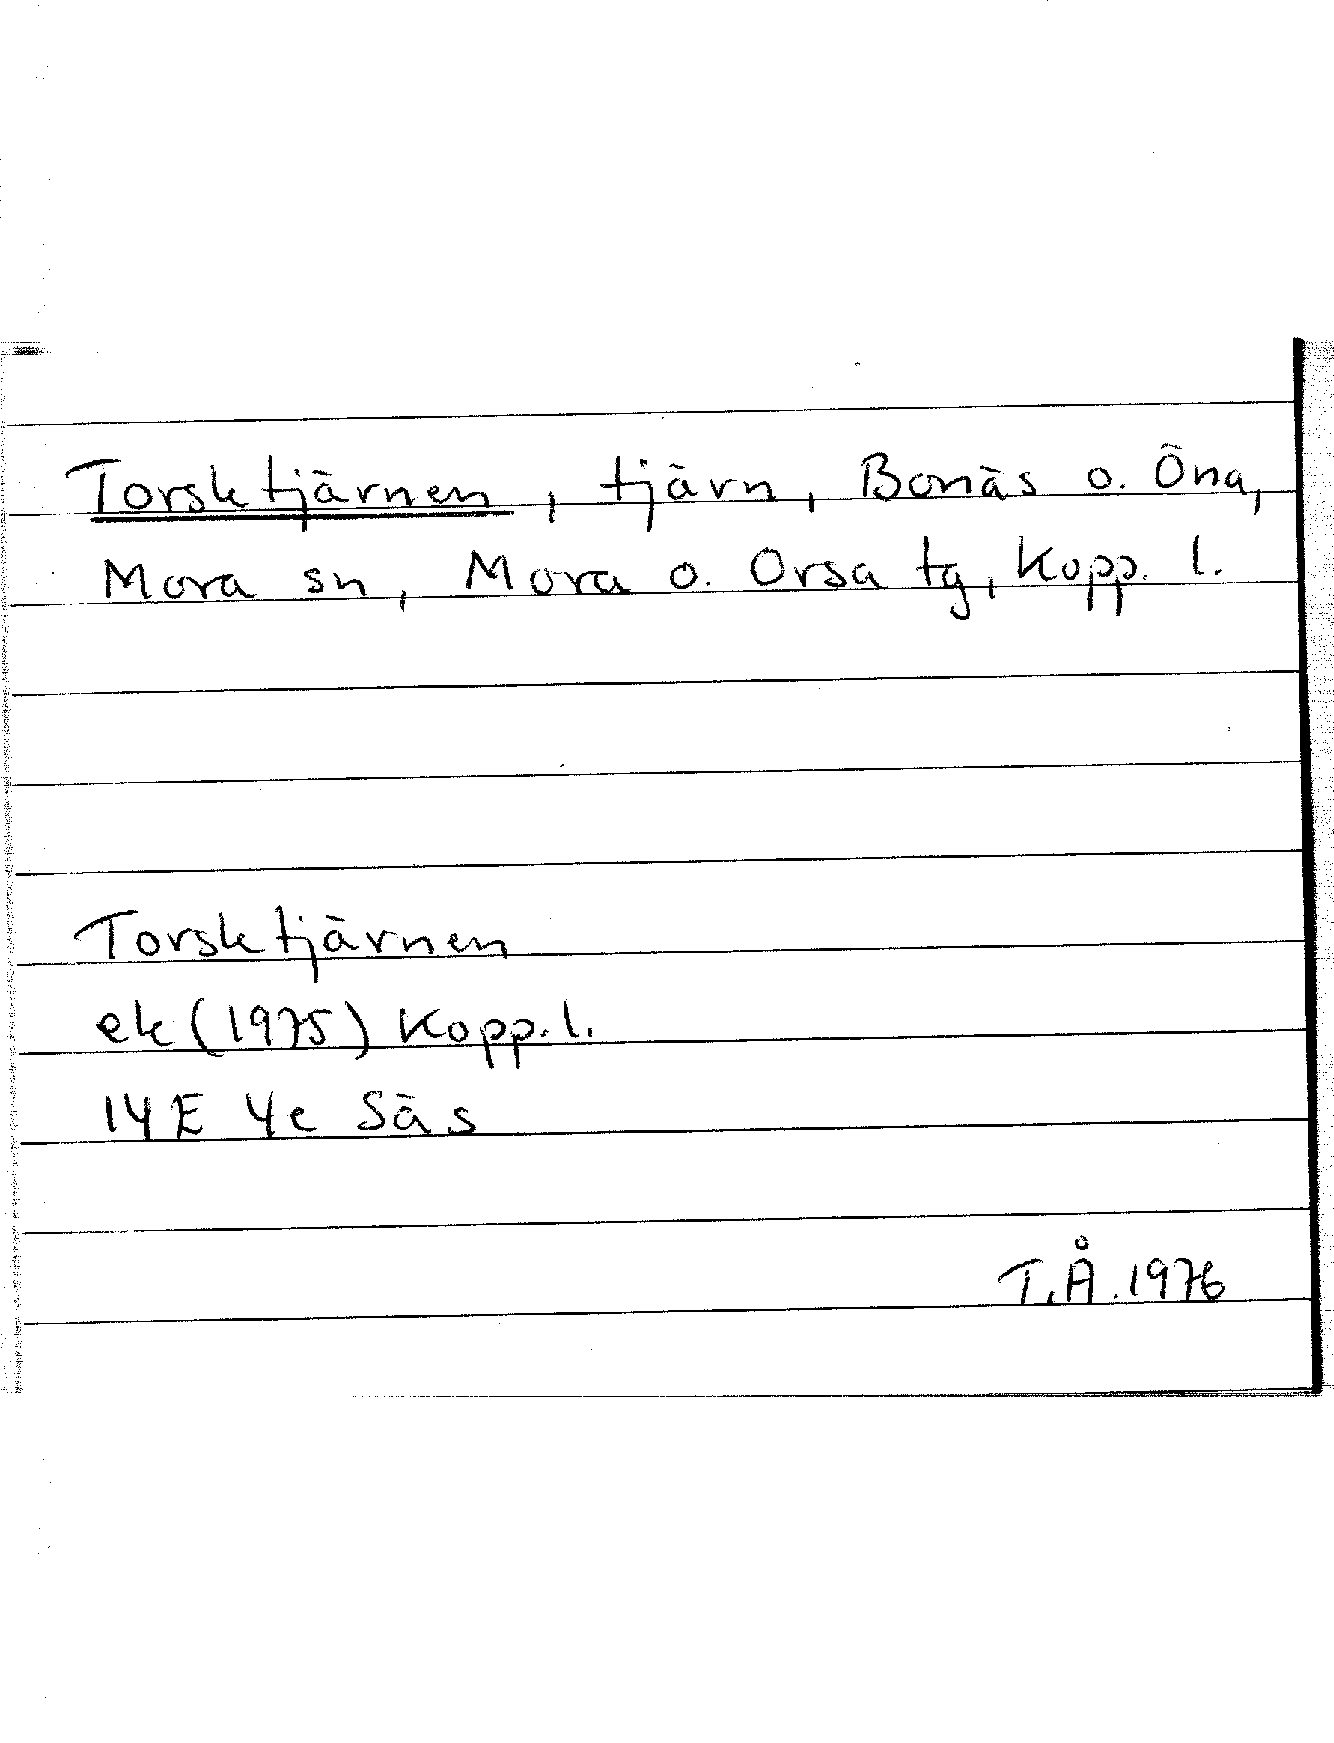 Torsktjärnen, tjärn, Bonäs o. Öna,
Mora sn, Mora o. Orsa tg, Kopp. l.
Torsktjärnen
ek (1975) Kopp. l.
14E 4e Säs
T.Å. 1976